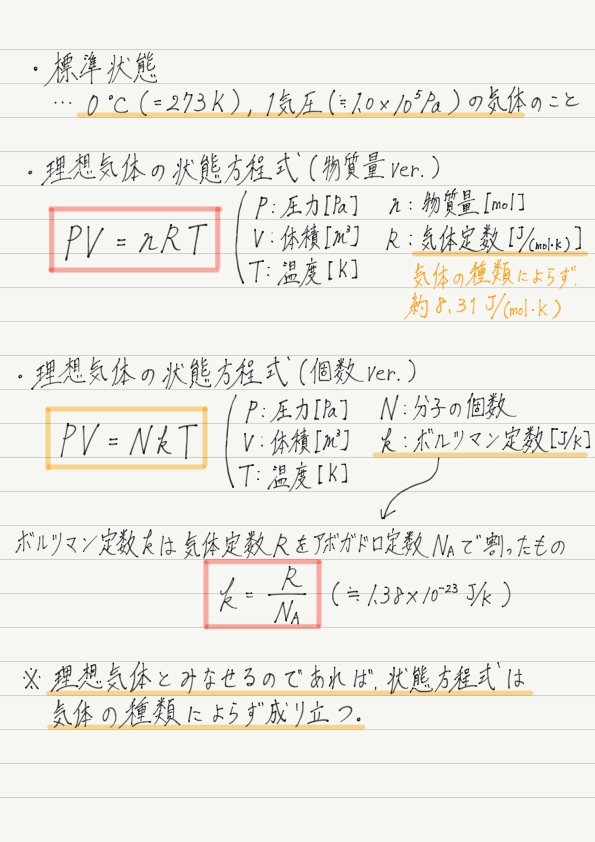 ・標準状態
… 0℃(=273K), 1気圧(≒1.0×10⁵Pa)の気体のこと
・理想気体の状態方程式(物質量ver.)
PV = nRT
P:圧力[Pa] n:物質量[mol]
V:体積[m³] R:気体定数[J/(mol・K)]
T:温度[K]
気体の種類によらず、
約8.31 J/(mol・K)
・理想気体の状態方程式(個数ver.)
PV = NkT
P:圧力[Pa] N:分子の個数
V:体積[m³] k:ボルツマン定数[J/K]
T:温度[K]
ボルツマン定数kは気体定数Rをアボガドロ定数NAで割ったもの
k = R/NA (≒1.38×10⁻²³ J/K)
※ 理想気体とみなせるのであれば、状態方程式は
気体の種類によらず成り立つ。